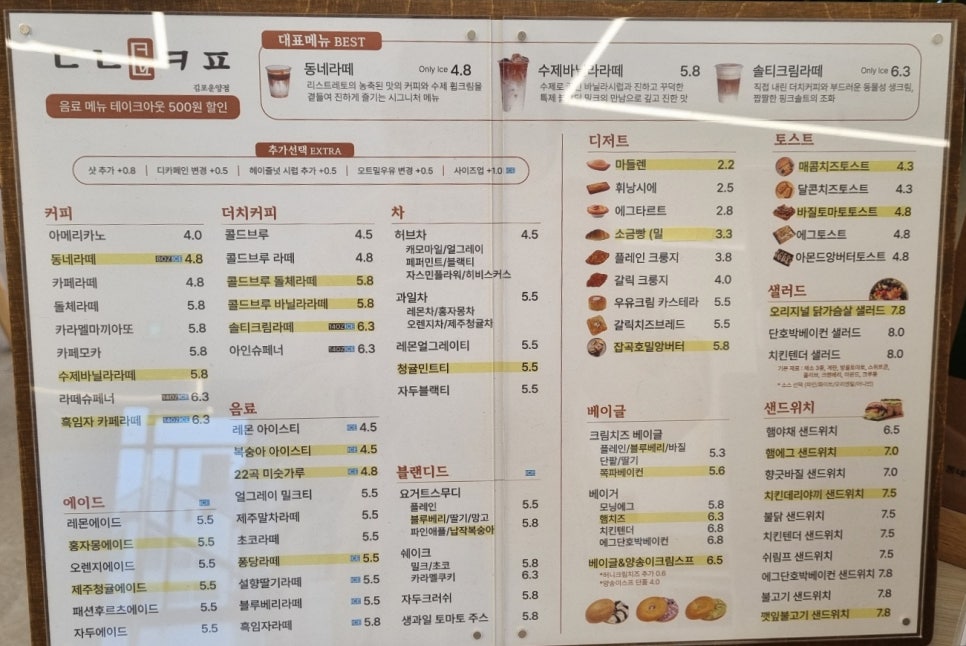 ㄷㄴ커ㅍ
김포운양점
음료 메뉴 테이크아웃 500원 할인
대표메뉴 BEST
동네라떼 Only Ice 4.8
리스트레토의 농축된 맛의 커피와 수제 휩크림을
곁들여 진하게 즐기는 시그니처 메뉴
수제바닐라라떼 5.8
수제로 바닐라시럽과 진하고 꾸덕한
특제 밀크의 만남으로 깊고 진한 맛
솔티크림라떼 Only Ice 6.3
직접 내린 더치커피와 부드러운 동물성 생크림,
짭짤한 핑크솔트의 조화
추가선택 EXTRA
샷 추가 +0.8 | 디카페인 변경 +0.5 | 헤이즐넛 시럽 추가 +0.5 | 오트밀우유 변경 +0.5 | 사이즈업 +1.0 ICE
커피
아메리카노 4.0
동네라떼 8OZ ICE 4.8
카페라떼 4.8
돌체라떼 5.8
카라멜마끼아또 5.8
카페모카 5.8
수제바닐라라떼 5.8
라떼슈페너 14OZ ICE 6.3
흑임자 카페라떼 14OZ ICE 6.3
에이드 ICE
레몬에이드 5.5
홍자몽에이드 5.5
오렌지에이드 5.5
제주청귤에이드 5.5
패션후르츠에이드 5.5
자두에이드 5.5
더치커피
콜드브루 4.5
콜드브루 라떼 4.8
콜드브루 돌체라떼 5.8
콜드브루 바닐라라떼 5.8
솔티크림라떼 14OZ ICE 6.3
아인슈페너 14OZ ICE 6.3
음료
레몬 아이스티 ICE 4.5
복숭아 아이스티 ICE 4.5
22곡 미숫가루 ICE 4.8
얼그레이 밀크티 5.5
제주말차라떼 5.5
초코라떼 5.5
퐁당라떼 ICE 5.5
설향딸기라떼 ICE 5.5
블루베리라떼 ICE 5.5
흑임자라떼 ICE 5.8
차
허브차 4.5
캐모마일/얼그레이
페퍼민트/블랙티
자스민플라워/히비스커스
과일차 5.5
레몬차/홍자몽차
오렌지차/제주청귤차
레몬얼그레이티 5.5
청귤민트티 5.5
자두블랙티 5.5
블랜디드 ICE
요거트스무디
플레인 5.5
블루베리/딸기/망고 5.8
파인애플/납작복숭아
쉐이크
밀크/초코 5.8
카라멜쿠키 6.3
자두크러쉬 5.8
생과일 토마토 주스 5.8
디저트
마들렌 2.2
휘낭시에 2.5
에그타르트 2.8
소금빵 (밀 3.3
플레인 크룽지 3.8
갈릭 크룽지 4.0
우유크림 카스테라 5.5
갈릭치즈브레드 5.5
잡곡호밀앙버터 5.8
베이글
크림치즈 베이글
플레인/블루베리/바질 5.3
단팥/딸기
쪽파베이컨 5.6
베이거
모닝에그 5.8
햄치즈 6.3
치킨텐더 6.8
에그단호박베이컨 6.8
베이글&양송이크림스프 6.5
*허니크림치즈 추가 0.6
*양송이스프 단품 4.0
토스트
매콤치즈토스트 4.3
달콘치즈토스트 4.3
바질토마토토스트 4.8
에그토스트 4.8
아몬드앙버터토스트 4.8
샐러드
오리지널 닭가슴살 샐러드 7.8
단호박베이컨 샐러드 8.0
치킨텐더 샐러드 8.0
샌드위치
햄야채 샌드위치 6.5
햄에그 샌드위치 7.0
향긋바질 샌드위치 7.0
치킨데리야끼 샌드위치 7.5
불닭 샌드위치 7.5
치킨텐더 샌드위치 7.5
쉬림프 샌드위치 7.5
에그단호박베이컨 샌드위치 7.8
불고기 샌드위치 7.8
깻잎불고기 샌드위치 7.8